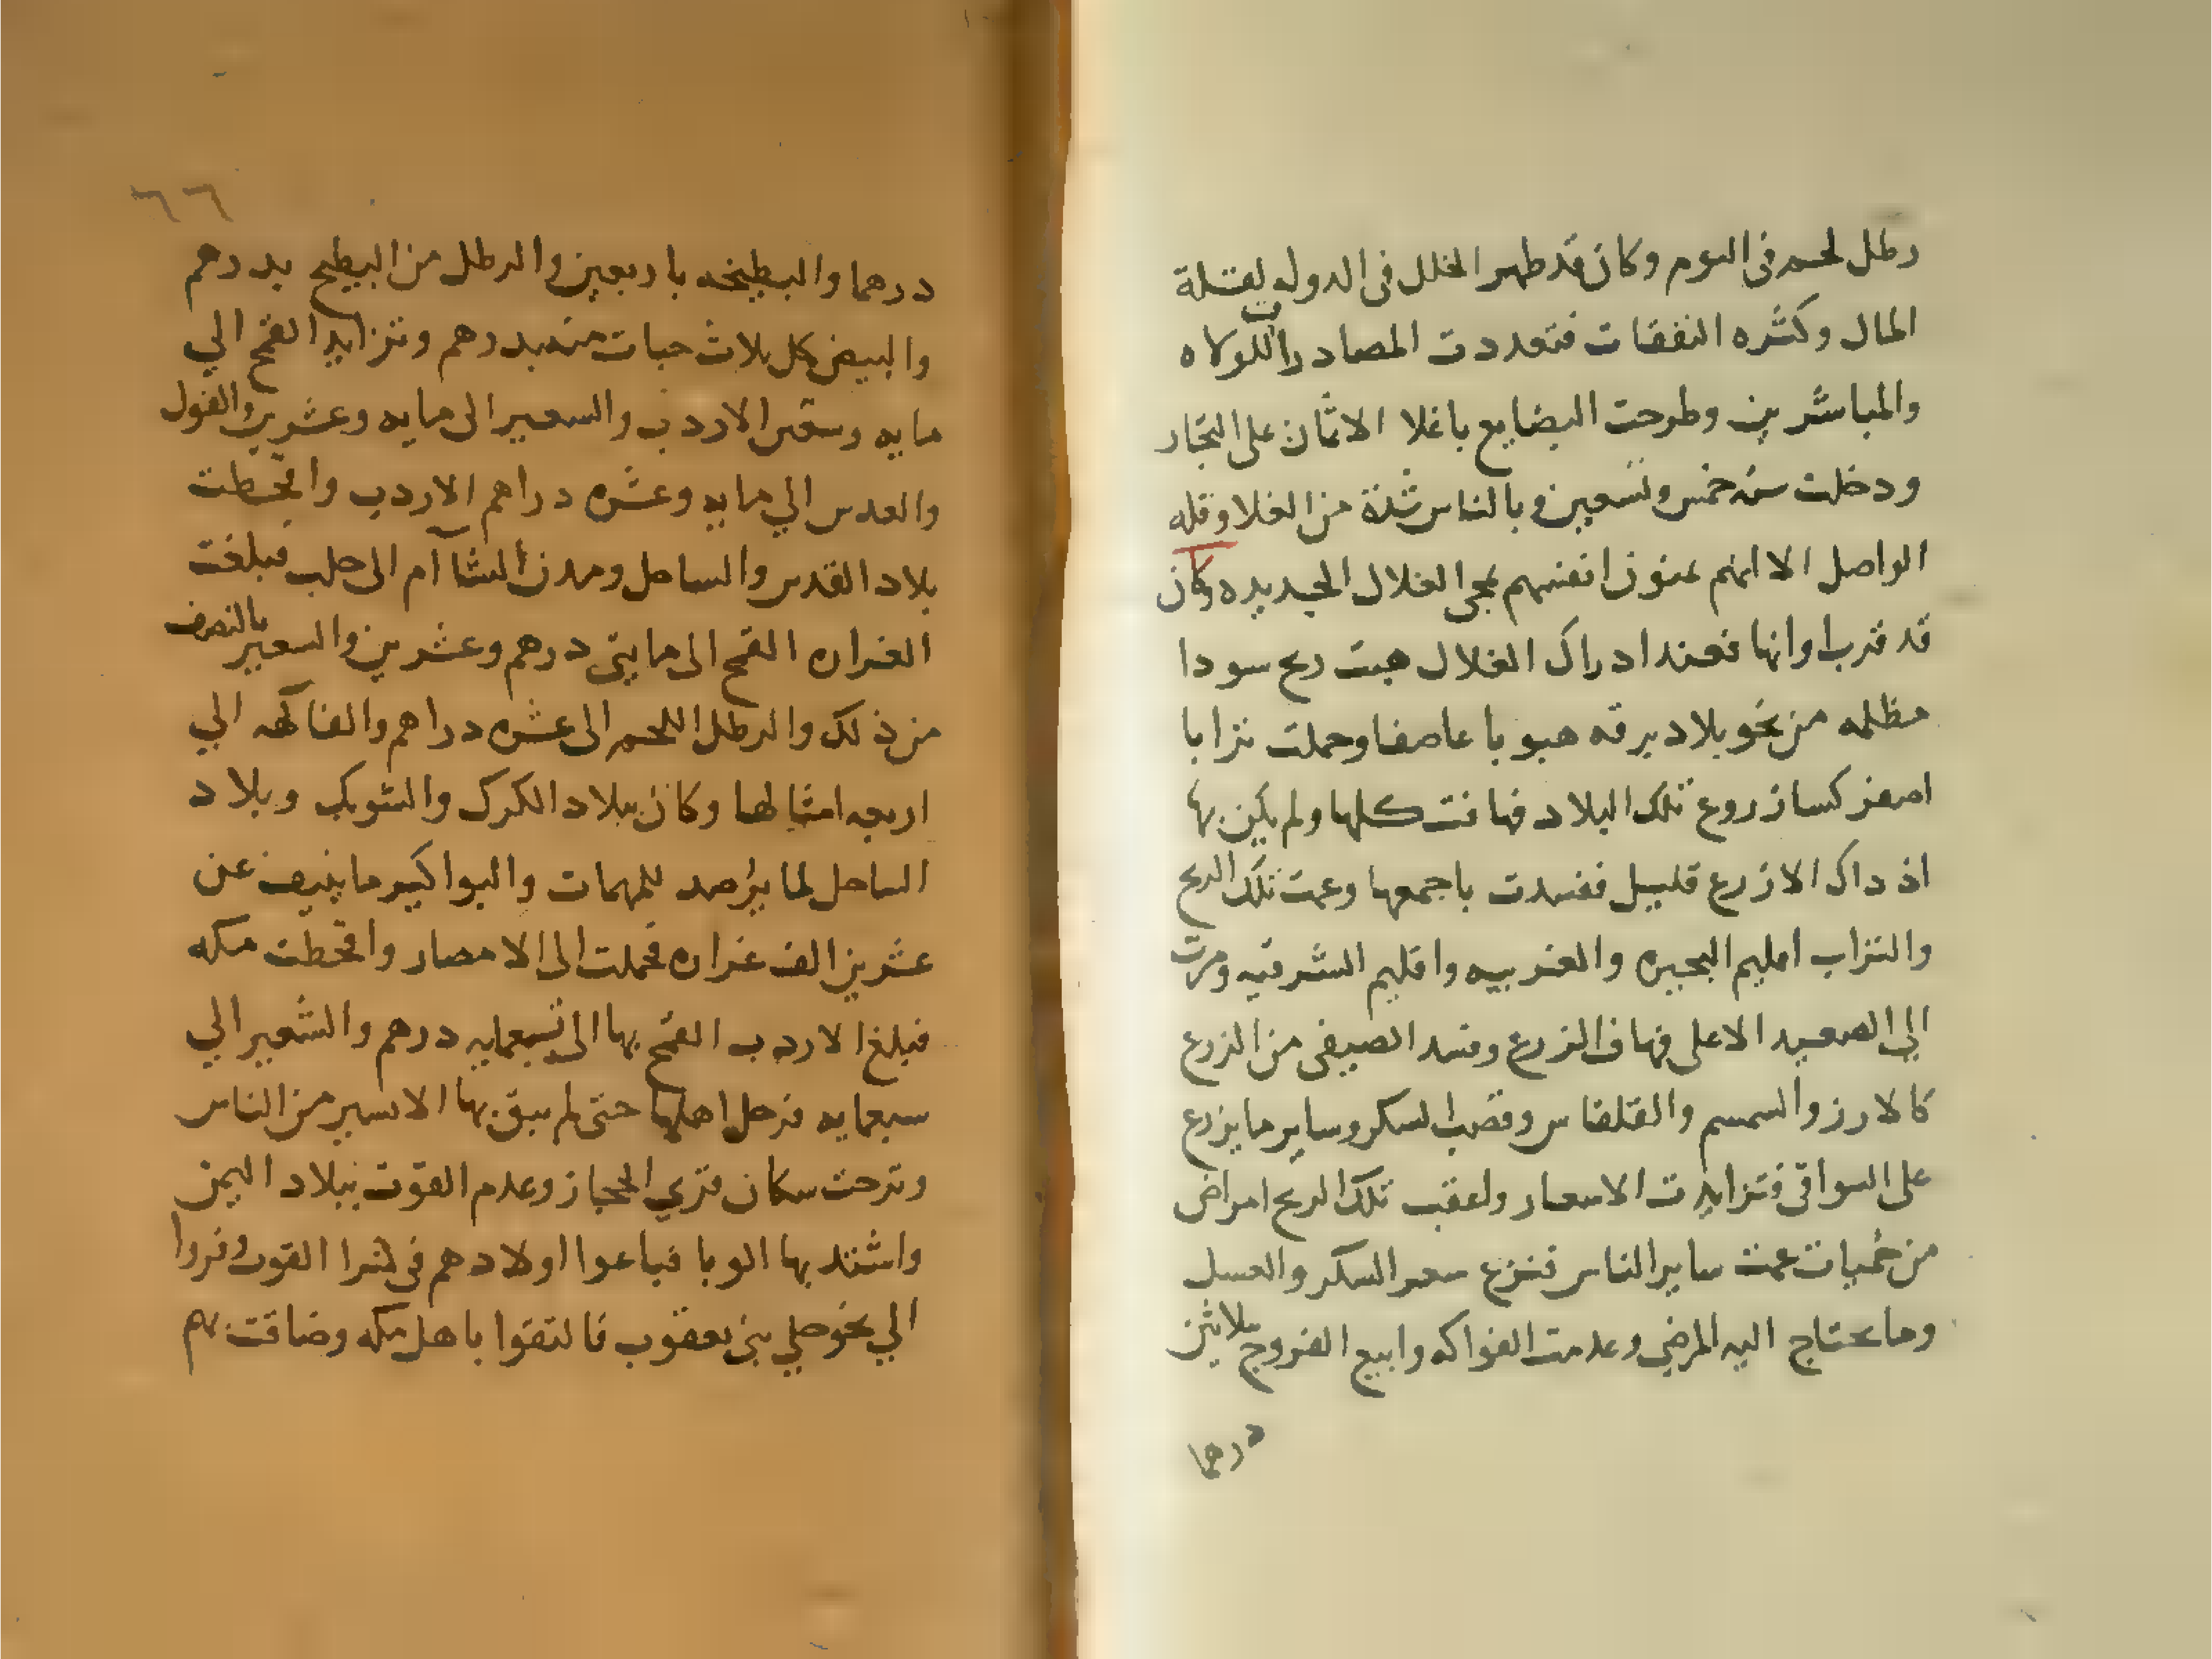 رطل لحم فى اليوم وكان قد ظهر الخلل فى الدوله لقلة
المال وكثره النفقات فتعددت المصادرات للولاه
والمباشرين وطرحت البضايع باغلا الاثمان على التجار
ودخلت سنه خمس وتسعين وبالناس شدة من الغلا وقله
الواصل الا انهم يمنون انفسهم بمجى الغلال الجديده وكان
قد قرب اوانها فعند ادراك الغلال هبت ريح سودا
مظلمه من نحو بلاد برقه هبوبا عاصفا وحملت ترابا
اصفر كسا زروع تلك البلاد فهافت كلها ولم يكن بها
اذ داك الا زرع قليل ففسدت باجمعها وعمت تلك الريح
والتراب اقليم البحيره والغربيه واقليم الشرقيه ومرت
الي الصعيد الاعلى فهاف الزرع وفسد الصيفى من الزرع
كالارز والسمسم والقلقاس وقصب السكر وساير ما يزرع
على السواقى فتزايدت الاسعار واعقب تلك الريح امراض
من حميات عمت ساير الناس فنزع سعر السكر والعسل
وما يحتاج اليه المرضي وعدمت الفواكه وابيع الفروج بثلاثين
درهما
٦٦
درهما والبطيخه باربعين والرطل من البطيخ بدرهم
والبيض كل ثلاث حبات منه بدرهم وتزايد القمح الي
مايه وسعين الاردب والشعير الى مايه وعشرين والفول
والعدس الي مايه وعشره دراهم الاردب واقحطت
بلاد القدس والساحل ومدن الشاآم الى حلب فبلغت
الغراره القمح الى مايتى درهم وعشرين والشعير بالنصف
من ذلك والرطل اللحم الى عشره دراهم والفاكهه الي
اربعه امثالها وكان ببلاد الكرك والشوبك وبلاد
الساحل لما يرصد للمهمات والبواكير ما ينيف عن
عشرين الف غراره فحملت الى الامصار واقحطت مكه
فبلغ الاردب القمح بها الى تسعمايه درهم والشعير الي
سبعمايه فرحل اهلها حتى لم يبق بها الا اليسير من الناس
ونزحت سكان قري الحجاز وعدم القوت ببلاد اليمن
واشتد بها الوبا فباعوا اولادهم فى شرا القوت وفروا
الي نحو حلي بنى يعقوب فالتقوا باهل مكه وضاقت بهم